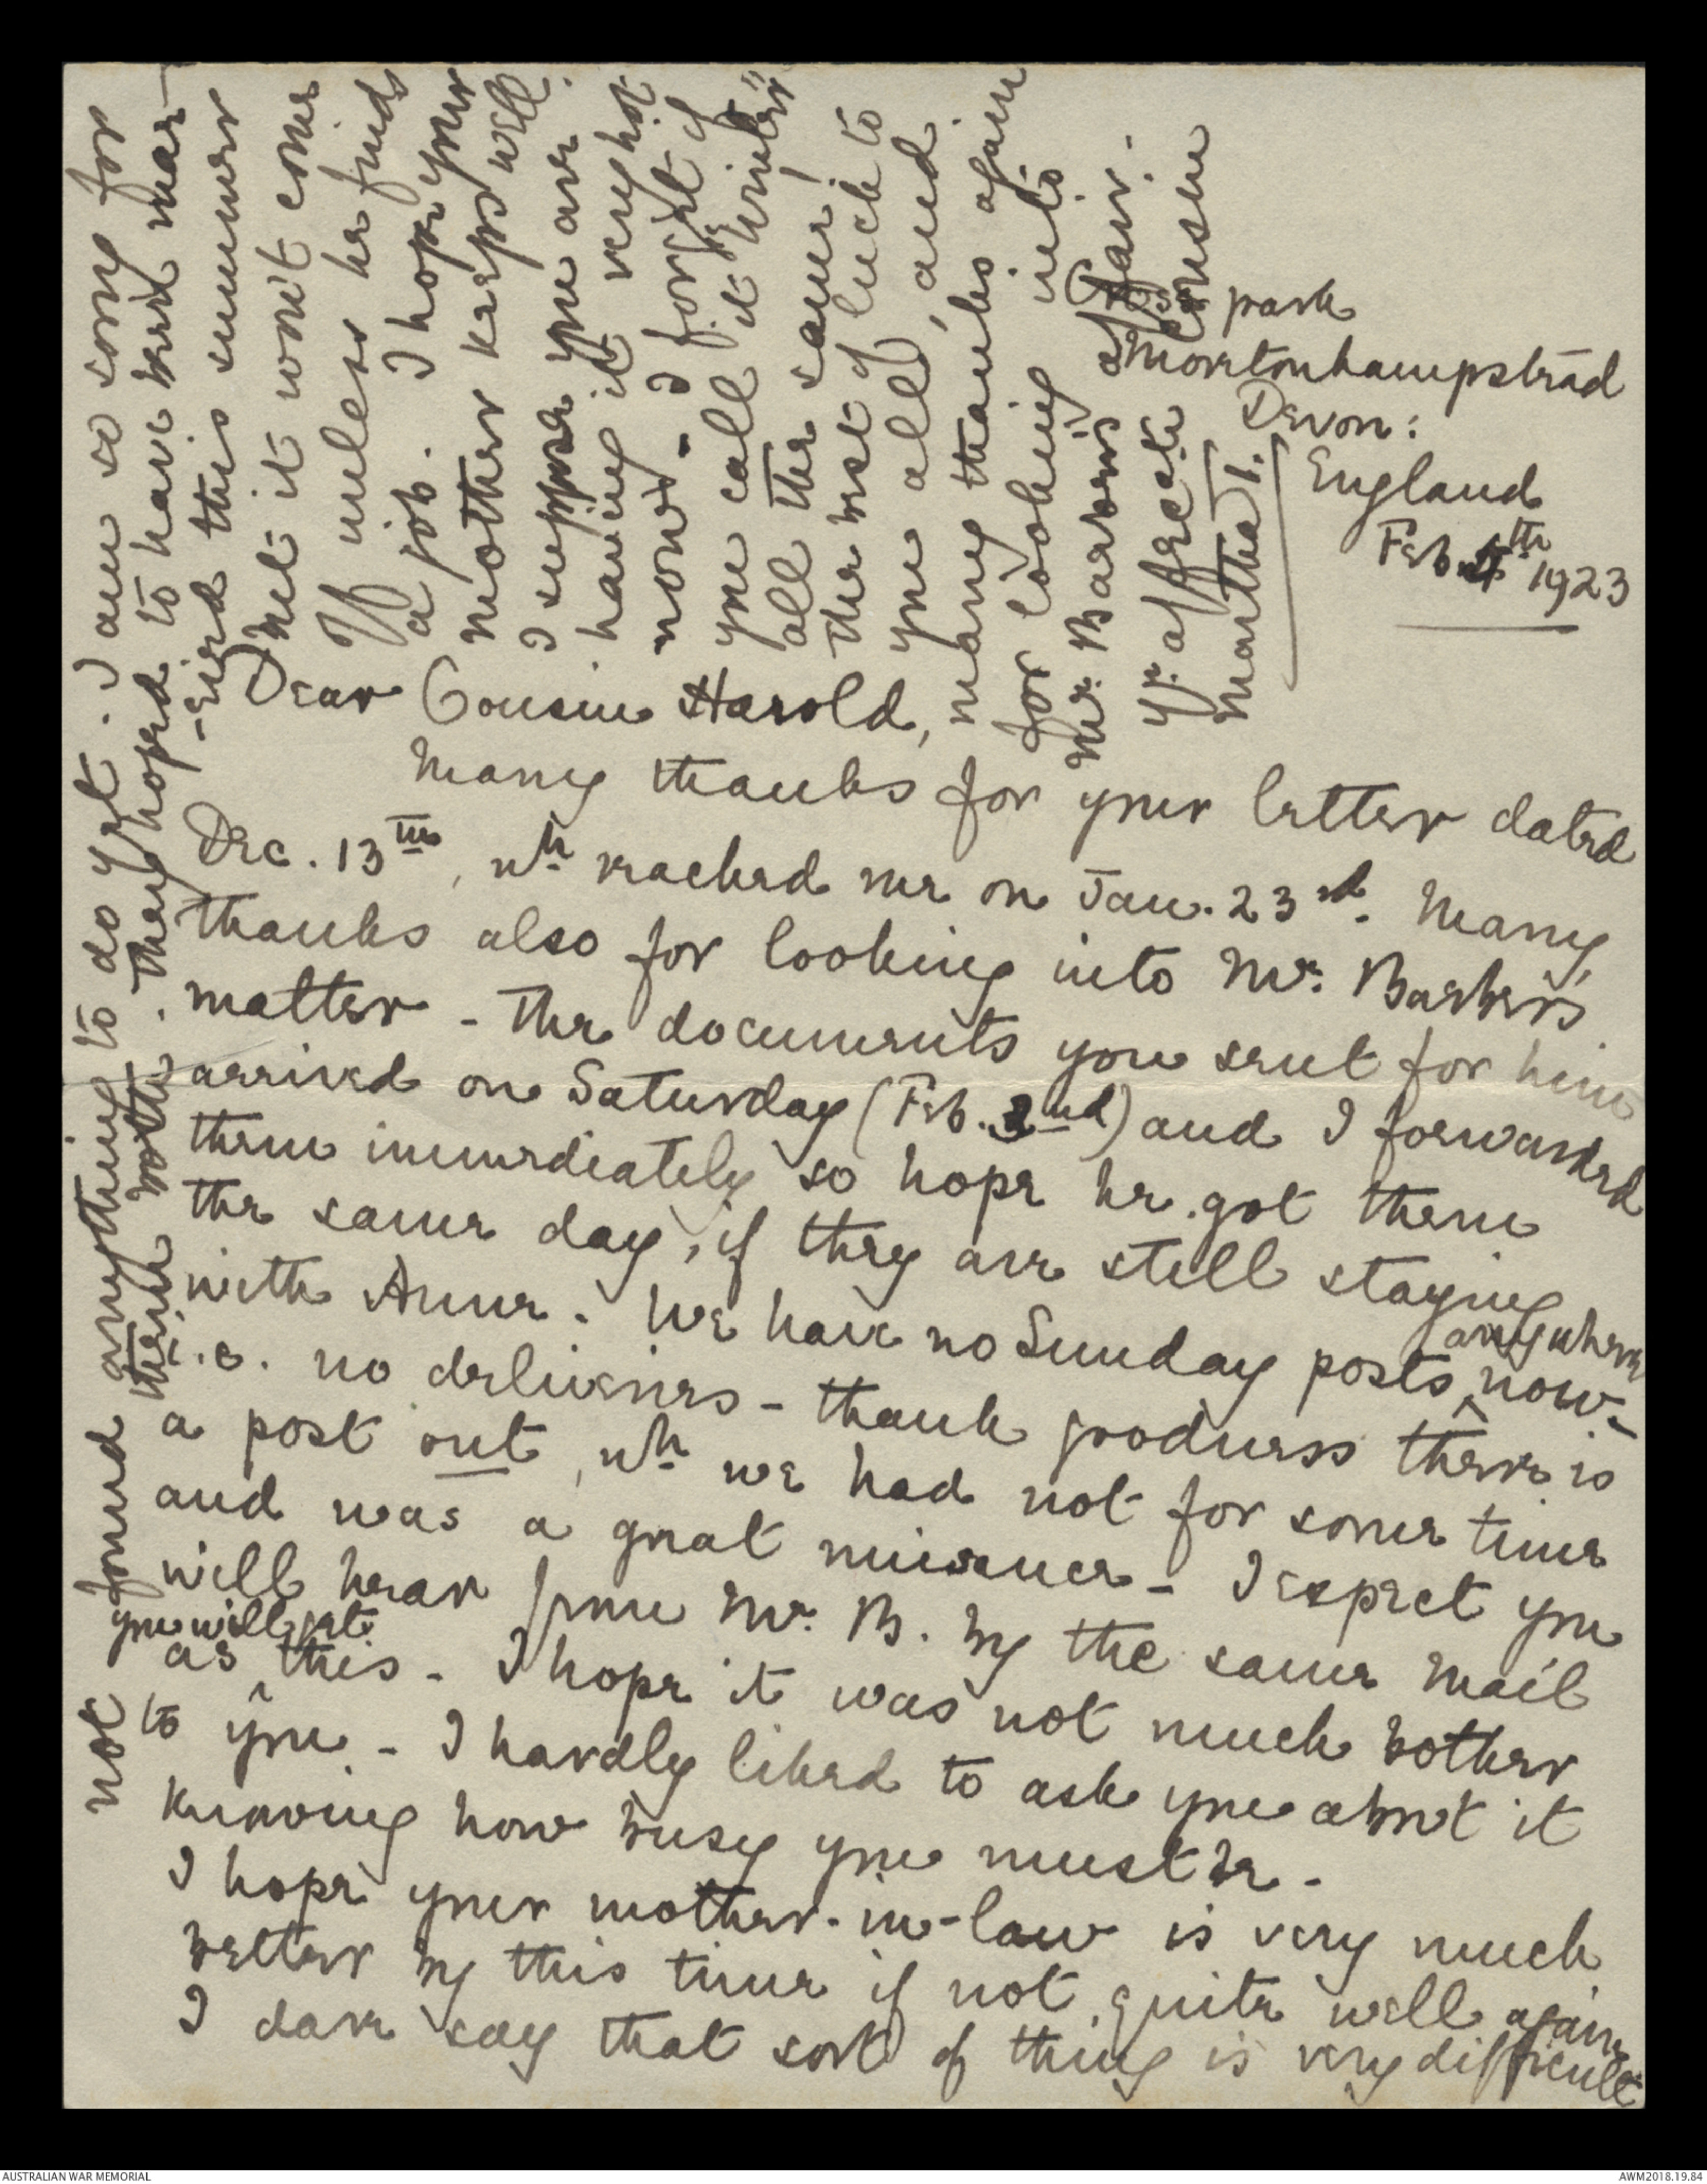 park
Moretonhampstead
Devon:
England
Feb. 4th 1923
Dear Cousin Harold,
Many thanks for your letter dated
Dec. 13th, wh reached me on Jan. 23rd. Many
thanks also for looking into Mr. Barber's
matter - The documents you sent for him
arrived on Saturday (Feb. 2nd) and I forwarded
them immediately so hope he got them
the same day, if they are still staying
with Anne. We have no Sunday posts anywhere now -
i.e. no deliveries - thank goodness there is
a post out, wh we had not for some time
and was a great nuisance - I expect you
will hear from Mr. B. by the same mail
as you will get this - I hope it was not much bother
to you - I hardly liked to ask you about it
knowing how busy you must be -
I hope your mother-in-law is very much
better by this time if not quite well again
I dare say that sort of thing is very difficult
not found anything to do yet. I am so sorry for
them both. They hoped to have been mar-
-ried this summer
but it won't come
off unless he finds
a job. I hope your
mother keeps well.
I suppose you are
having it very hot
now - I forget if
you call it "winter"
all the same!
The best of luck to
you all, and
many thanks again
for looking into
Mr. Barber's affair.
Yr. affecate cousin
Martha T.
AUSTRALIAN WAR MEMORIAL
AWM2018.19.84